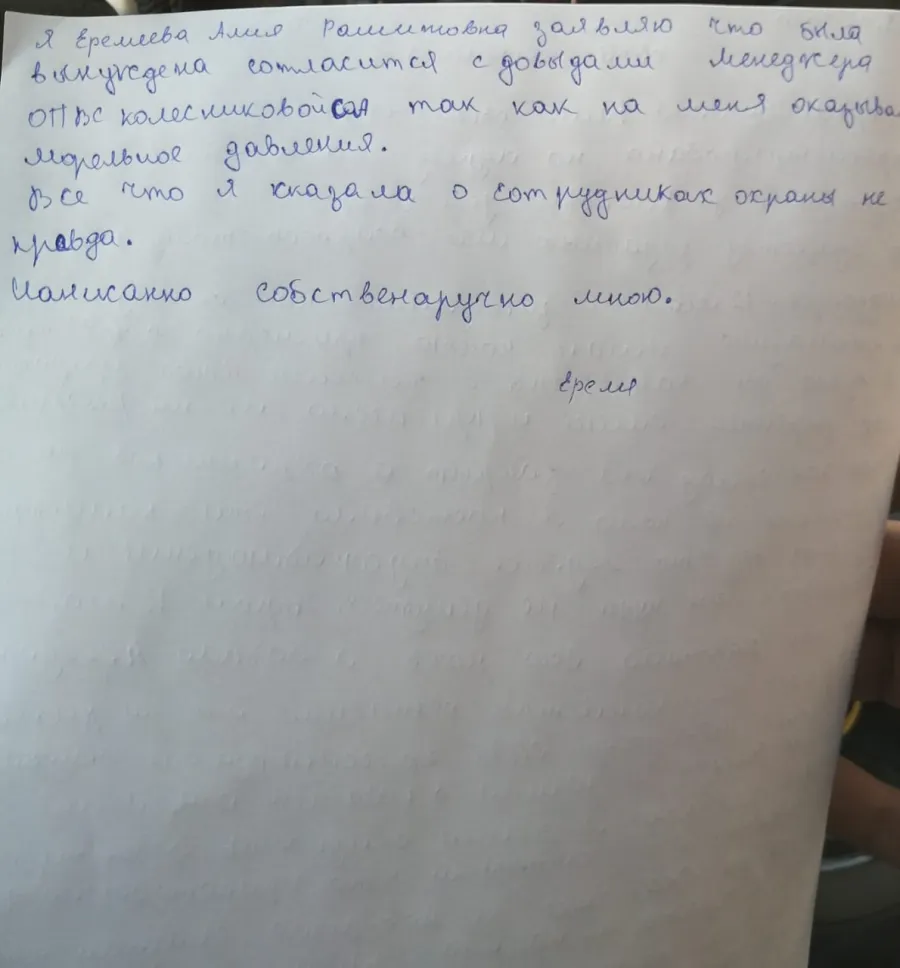 Я Еремеева Алия Рашитовна заявляю что была
вынуждена согласится с довыдами менеджера
ОПВС колесниковой так как на меня оказыва
моральное давления.
Все что я сказала о сотрудниках охраны не
правда.
Написанно собственаручно мною.
Ерем